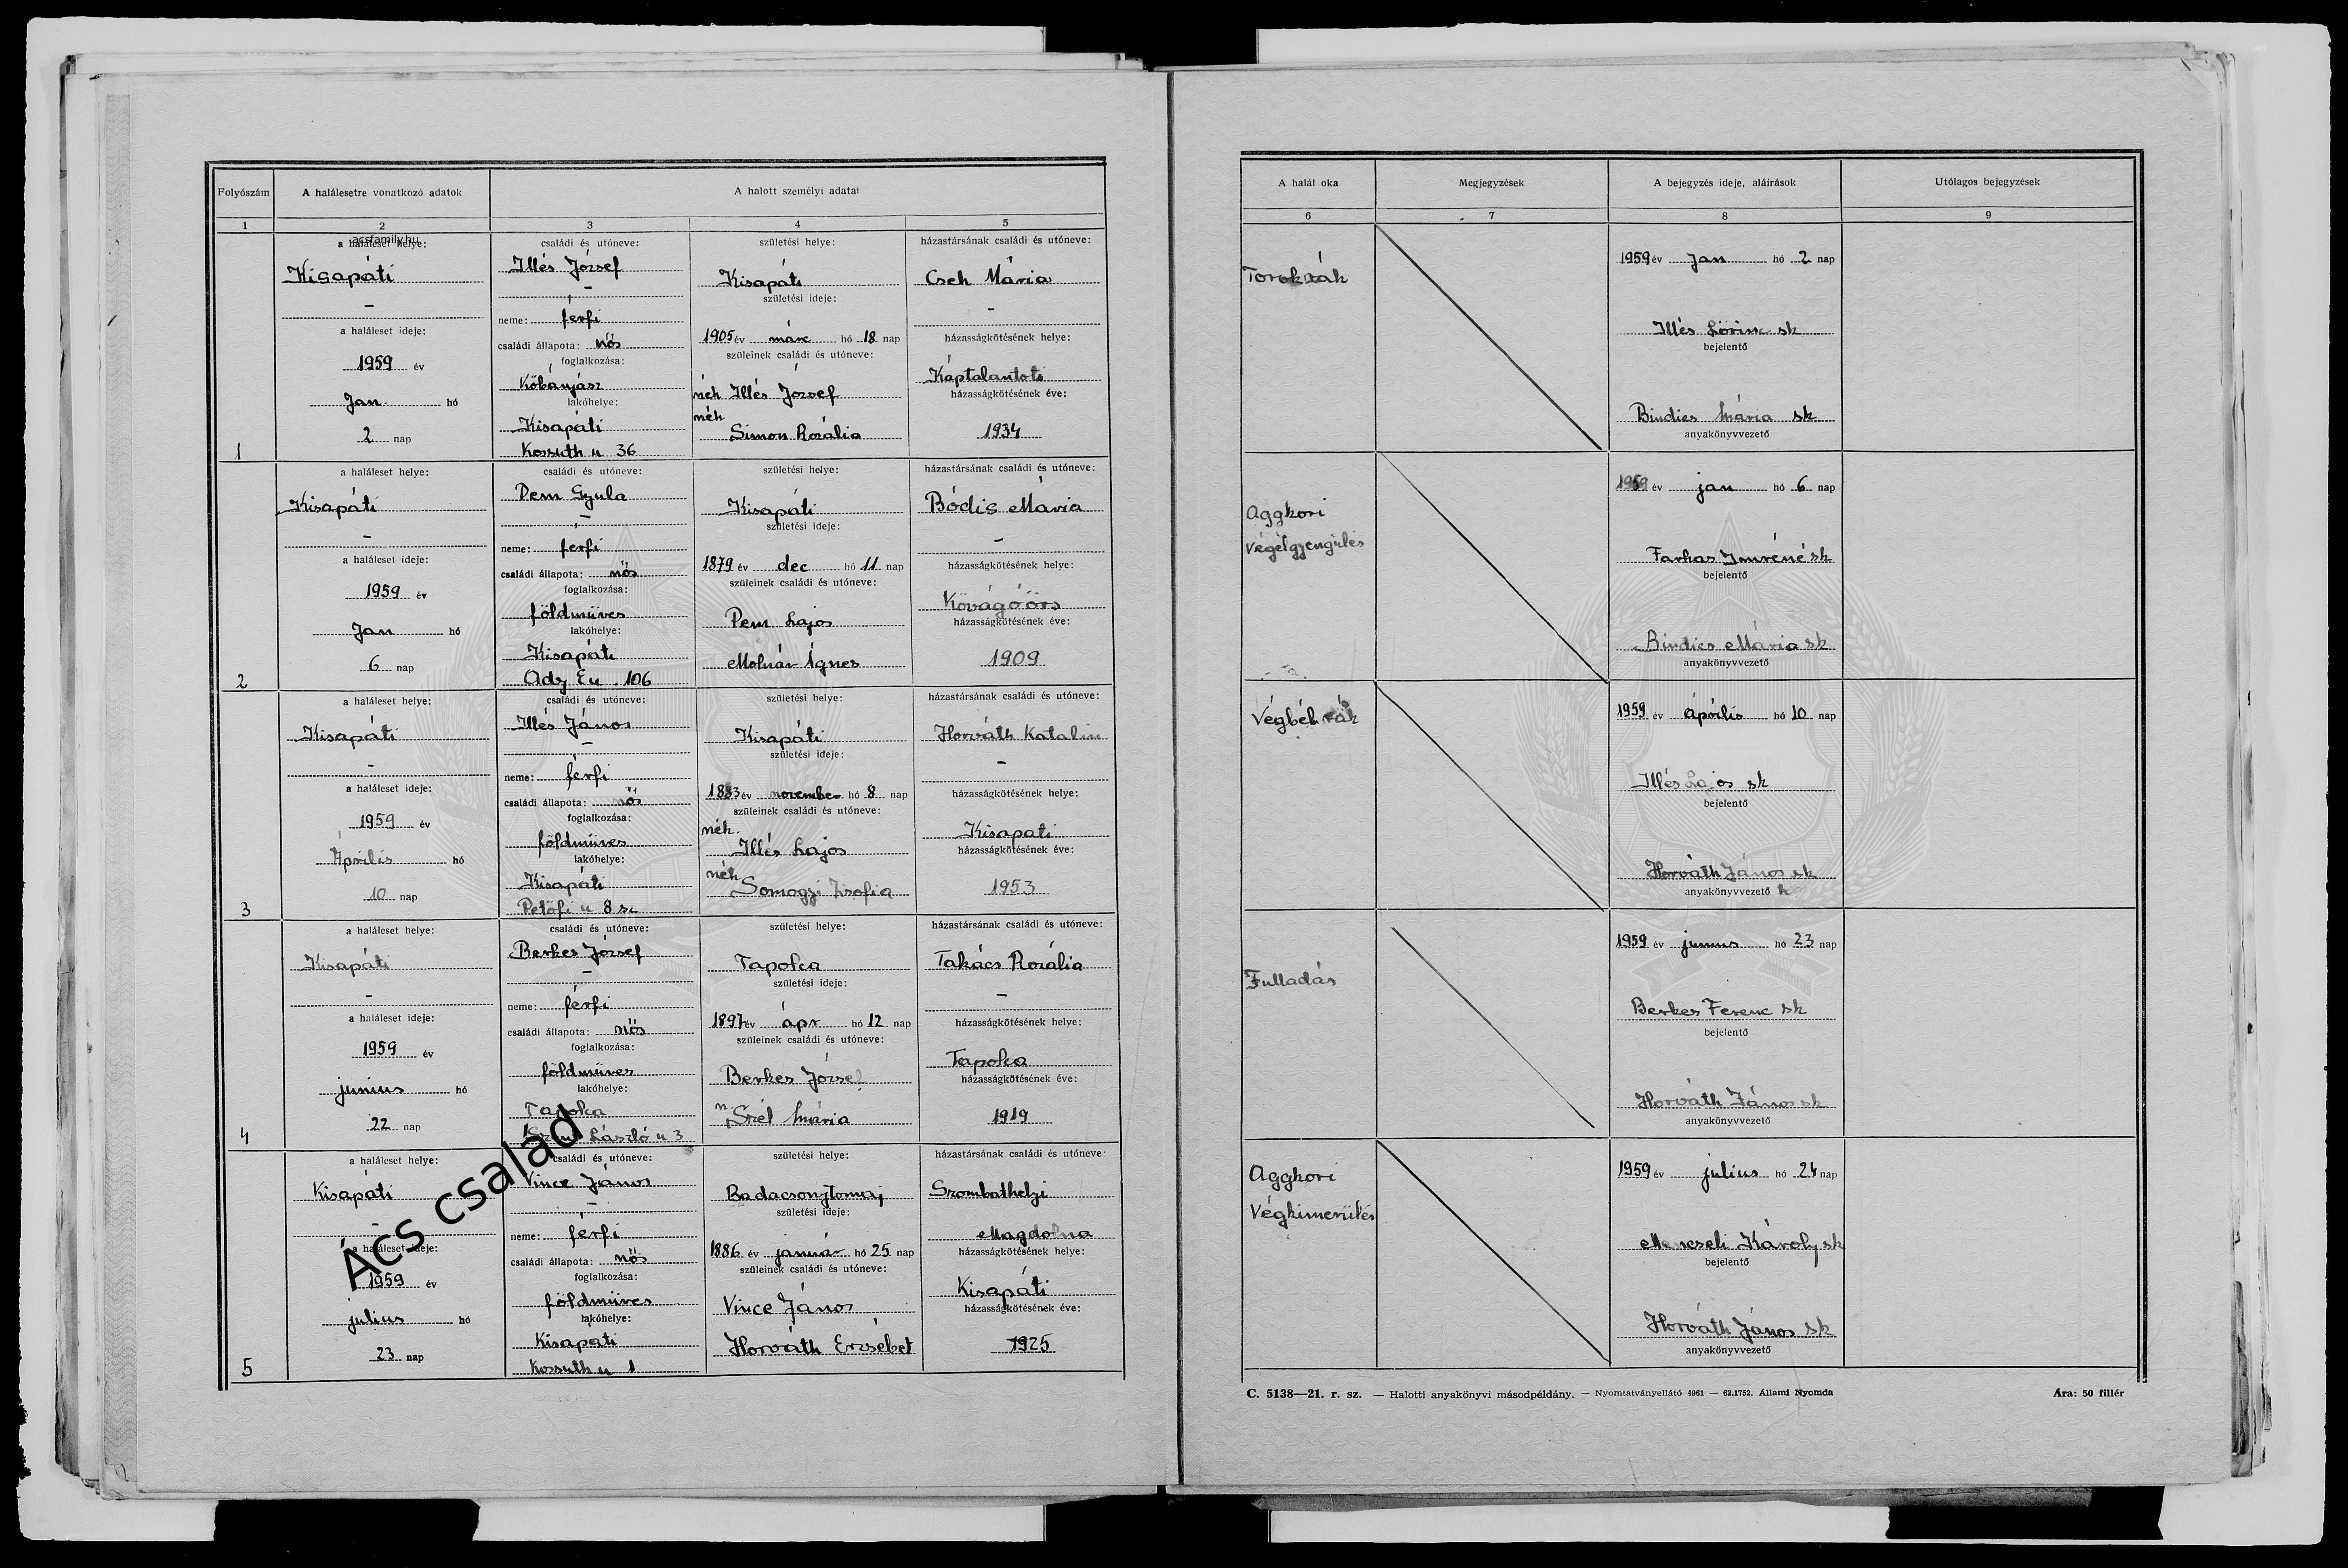 Folyószám
A halálesetre vonatkozó adatok
A halott személyi adatai
1
2
3
4
5
acsfamily.hu
a haláleset helye:
Kisapáti
-
a haláleset ideje:
1959 év
Jan. hó
2 nap
1
családi és utóneve:
Illés József
-
neme: férfi
családi állapota: nős
foglalkozása:
Kőbányász
lakóhelye:
Kisapáti
Kossuth u 36
születési helye:
Kisapáti
születési ideje:
1905 év márc hó 18 nap
szüleinek családi és utóneve:
néh Illés József
néh
Simon Rozália
házastársának családi és utóneve:
Cseh Mária
-
házasságkötésének helye:
Káptalantóti
házasságkötésének éve:
1934
a haláleset helye:
Kisapáti
-
a haláleset ideje:
1959 év
Jan hó
6 nap
2
családi és utóneve:
Pem Gyula
-
neme: férfi
családi állapota: nős
foglalkozása:
földmüves
lakóhelye:
Kisapáti
Ady E u. 106
születési helye:
Kisapáti
születési ideje:
1879 év dec hó 11 nap
szüleinek családi és utóneve:
Pem Lajos
Molnár Ágnes
házastársának családi és utóneve:
Bódis Mária
-
házasságkötésének helye:
Kővágóörs
házasságkötésének éve:
1909
a haláleset helye:
Kisapáti
-
a haláleset ideje:
1959 év
Április hó
10 nap
3
családi és utóneve:
Illés János
-
neme: férfi
családi állapota: nős
foglalkozása:
földmüves
lakóhelye:
Kisapáti
Petőfi u 8 sz
születési helye:
Kisapáti
születési ideje:
1883 év november hó 8 nap
szüleinek családi és utóneve:
néh.
Illés Lajos
néh
Somogyi Zsofia
házastársának családi és utóneve:
Horváth Katalin
-
házasságkötésének helye:
Kisapati
házasságkötésének éve:
1953
a haláleset helye:
Kisapáti
-
a haláleset ideje:
1959 év
junius hó
22 nap
4
családi és utóneve:
Berkes József
-
neme: férfi
családi állapota: nős
foglalkozása:
földmüves
lakóhelye:
Tapolca
László u 3
születési helye:
Tapolca
születési ideje:
1897 év ápr hó 12 nap
szüleinek családi és utóneve:
Berkes József
Szél Mária
házastársának családi és utóneve:
Takács Rozália
-
házasságkötésének helye:
Tapolca
házasságkötésének éve:
1919
a haláleset helye:
Kisapáti
-
a haláleset ideje:
1959 év
julius hó
23 nap
5
Ács család
családi és utóneve:
Vince János
-
neme: férfi
családi állapota: nős
foglalkozása:
földmüves
lakóhelye:
Kisapati
Kossuth u 1
születési helye:
Badacsonytomaj
születési ideje:
1886 év január hó 25 nap
szüleinek családi és utóneve:
Vince János
Horváth Erzsébet
házastársának családi és utóneve:
Szombathelyi
Magdolna
házasságkötésének helye:
Kisapáti
házasságkötésének éve:
1925
A halál oka
Megjegyzések
A bejegyzés ideje, aláírások
Utólagos bejegyzések
6
7
8
9
Torokrák
1959 év Jan hó 2 nap
Illés Lőrinc sk
bejelentő
Bindics Mária sk
anyakönyvvezető
Aggkori
Végelgyengülés
1959 év jan hó 6 nap
Farkas Imréné sk
bejelentő
Bindics Mária sk
anyakönyvvezető
Végbélrák
1959 év április hó 10 nap
Illés Lajos sk
bejelentő
Horváth János sk
anyakönyvvezető
Fulladás
1959 év junius hó 23 nap
Berkes Ferenc sk
bejelentő
Horváth János sk
anyakönyvvezető
Aggkori
Végkimerülés
1959 év julius hó 24 nap
Mencseli Károly sk
bejelentő
Horváth János sk
anyakönyvvezető
C. 5138—21. r. sz. — Halotti anyakönyvi másodpéldány. — Nyomtatványellátó 4961 — 62.1752. Állami Nyomda
Ára: 50 fillér